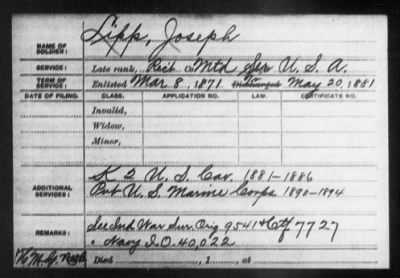 Lipp, Joseph
NAME OF SOLDIER:
SERVICE: Late rank, Mtd Ser U. S. A.
TERM OF SERVICE: Enlisted Mar 8, 1871, Discharged May 20, 1881
DATE OF FILING. CLASS. APPLICATION NO. LAW. CERTIFICATE NO.
Invalid,
Widow,
Minor,
K 2 U. S. Cav. 1881-1886
ADDITIONAL SERVICES: Pvt U. S. Marine Corps 1890-1894
See Ind. War Sur. Orig 9541 & Ctf 7727
REMARKS: " Navy I.O. 40,022
Died , 1 , at